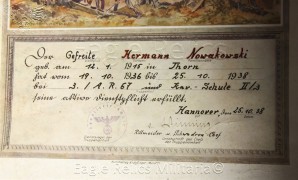 Der Gefreite Hermann Nowakowski
geb. am 12. 1. 1915 in Thorn
hat vom 19. 10. 1936 bis 25. 10. 1938
bei 3./A.R. 67 und Kav.-Schule II/3
seine aktive Dienstpflicht erfüllt.
Hannover, den 25. 10. 38
Rittmeister u. Schwadron Chef
Eagle Relics Militaria ©